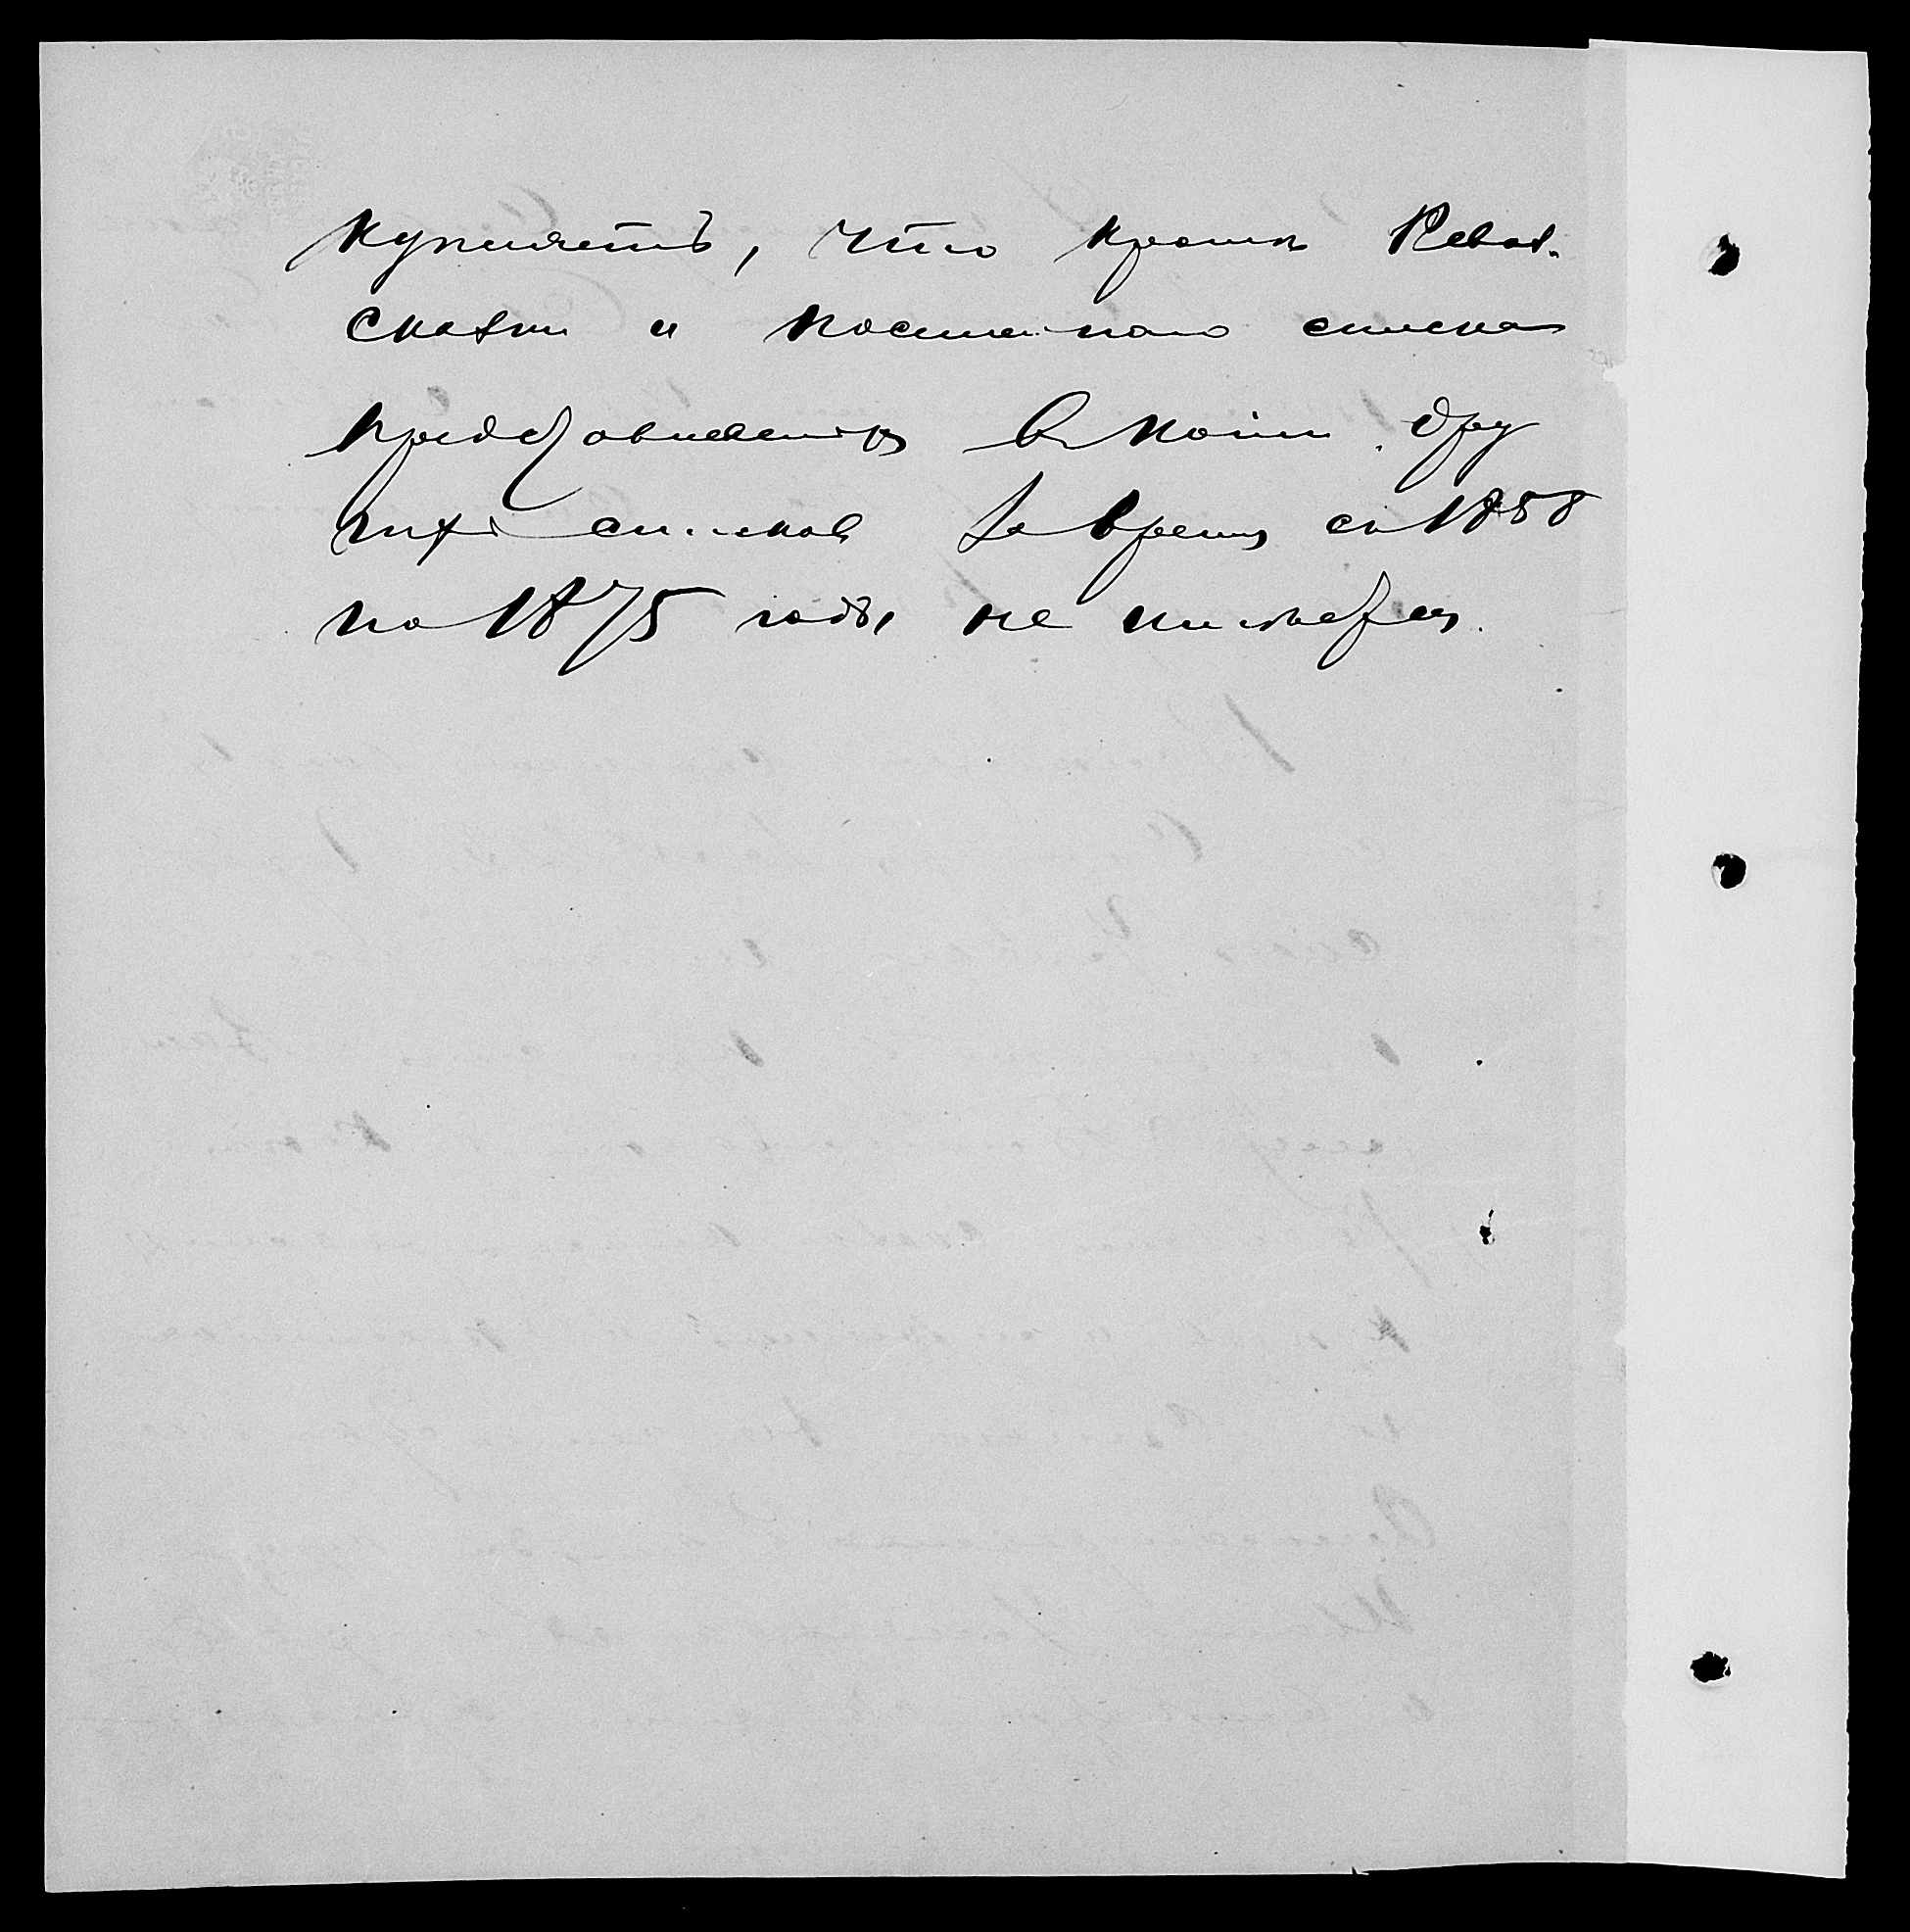 купляетъ, что кромѣ Ревиз.
сказки и посемейнаго списка
представленныхъ въ копіи, дру
гихъ списковъ за время съ 1858
по 1875 годъ, не имѣется.